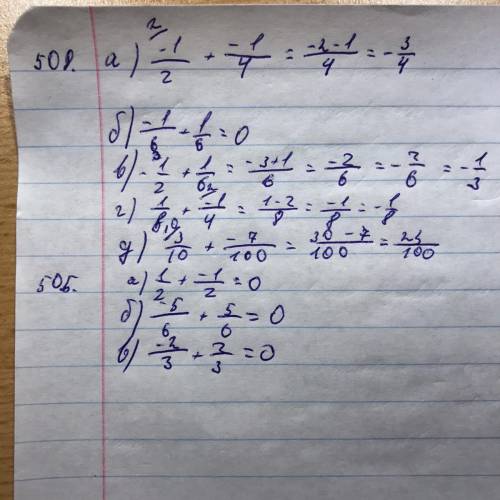 508. а) -1/2 + -1/4 = -2-1/4 = -3/4
б) -1/6 + 1/6 = 0
в) -1/2 + 1/6 = -3+1/6 = -2/6 = -2/6 = -1/3
г) 1/8 + -1/4 = 1-2/8 = -1/8 = -1/8
д) 3/10 + -7/100 = 30-7/100 = 23/100
505. а) 1/2 + -1/2 = 0
б) -5/6 + 5/6 = 0
в) -2/3 + 2/3 = 0